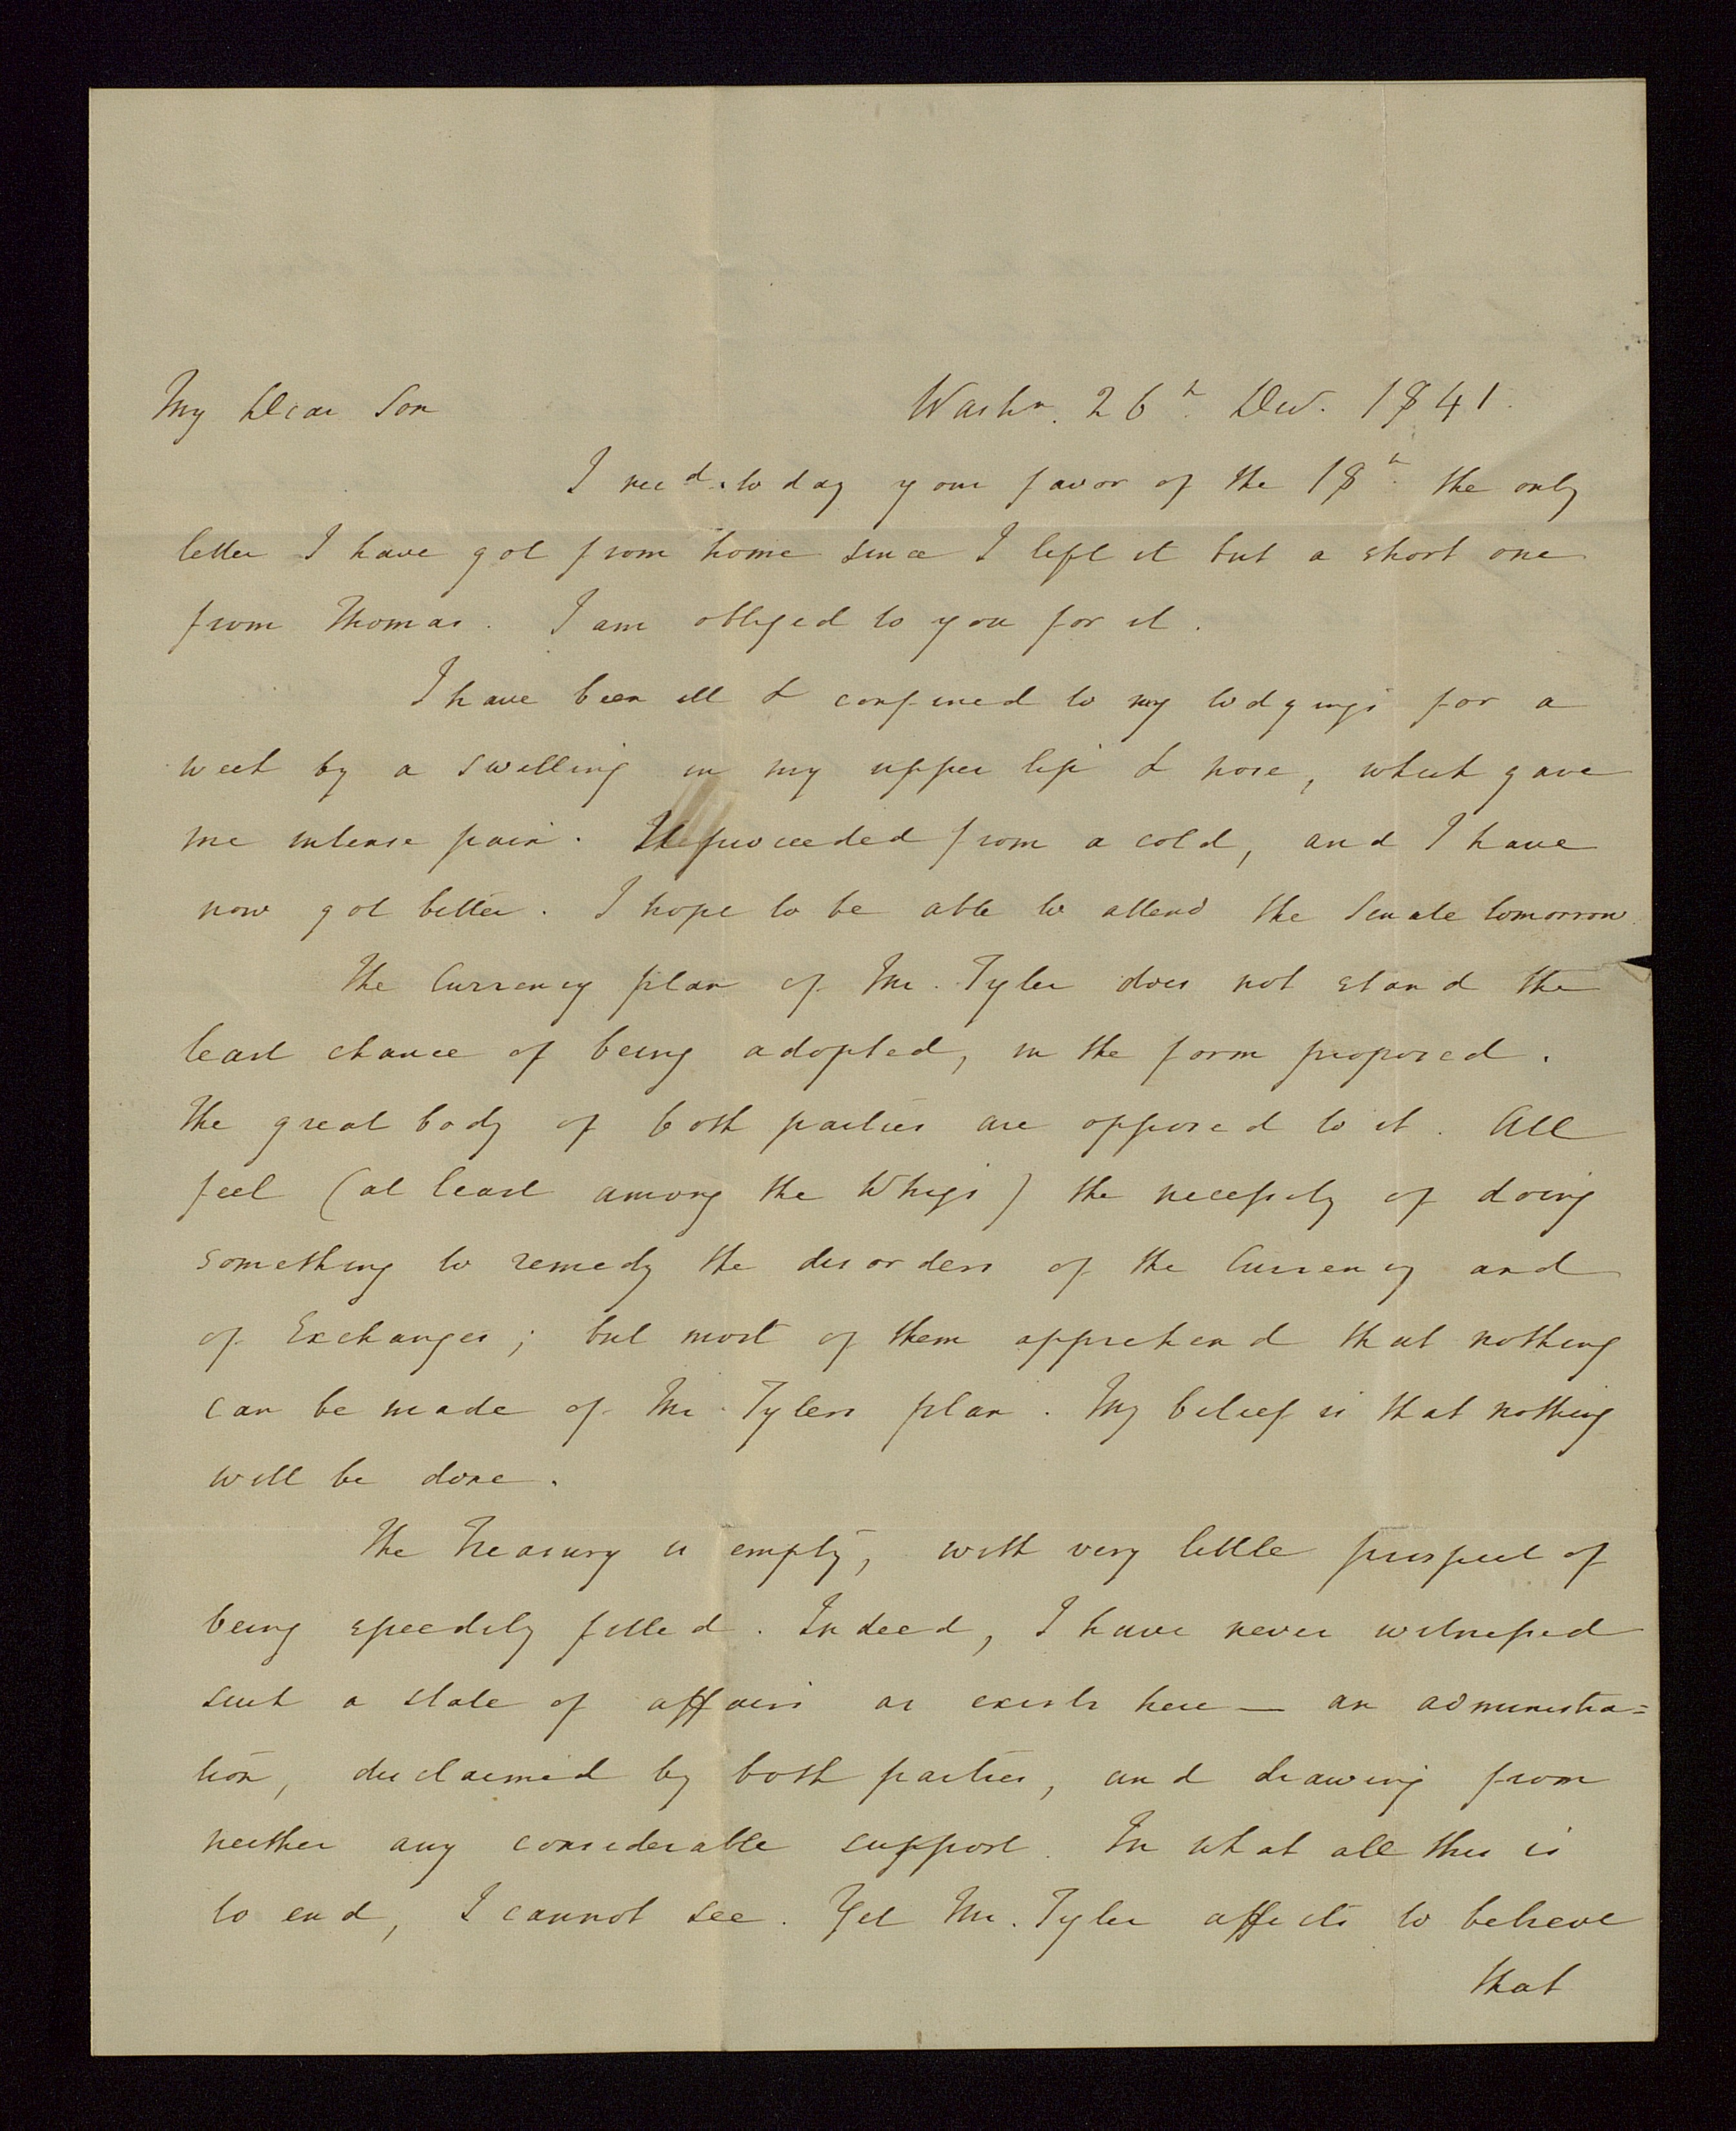 My Dear Son Washn. 26h. Dec. 1841.
I recd. to day your favor of the 18h. the only
letter I have got from home since I left it but a short one
from Thomas. I am obliged to you for it.
I have been ill & confined to my lodgings for a
week by a swelling in my upper lip & nose, which gave
me intense pain. It proceeded from a cold, and I have
now got better. I hope to be able to attend the Senate tomorrow.
The Currency plan of Mr. Tyler does not stand the
least chance of being adopted, in the form proposed.
The great body of both parties are opposed to it. All
feel (at least among the Whigs) the necessity of doing
something to remedy the disorders of the Currency and
of Exchanges; but most of them apprehend that nothing
can be made of Mr. Tylers plan. My belief is that nothing
will be done.
The Treasury is empty, with very little prospect of
being speedily filled. Indeed, I have never witnessed
such a state of affairs as exists here — an administra=
tion, disclaimed by both parties, and drawing from
neither any considerable support. In what all this is
to end, I cannot see. Yet Mr. Tyler affects to believe
that